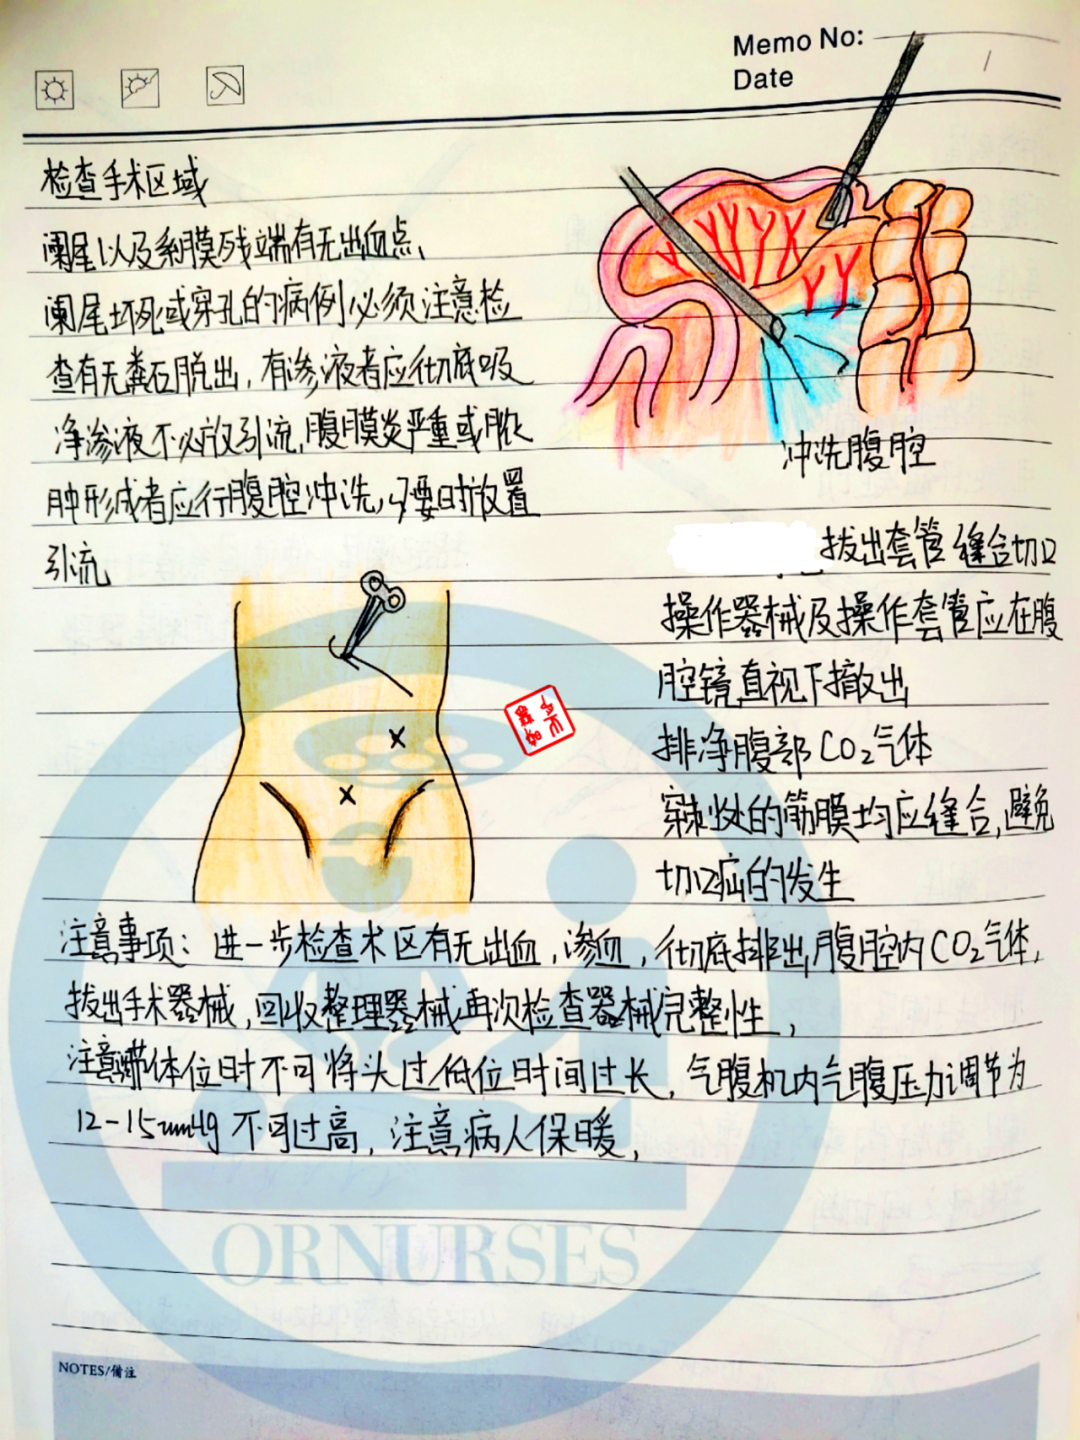 Memo No:
Date
检查手术区域
阑尾以及系膜残端有无出血点、
阑尾坏死或穿孔的病例必须注意检
查有无粪石脱出，有渗液者应彻底吸
净渗液不必放引流，腹膜炎严重或脓
肿形成者应行腹腔冲洗，必要时放置
引流
冲洗腹腔
拔出套管 缝合切口
操作器械及操作套管应在腹
腔镜直视下撤出
排净腹部CO₂气体
穿刺处的筋膜均应缝合，避免
切口疝的发生
注意事项：进一步检查术区有无出血，渗血，彻底排出腹腔内CO₂气体，
拔出手术器械，回收整理器械再次检查器械完整性，
注意 体位时不可将头过低位时间过长，气腹机内气腹压力调节为
12-15mmHg 不可过高，注意病人保暖，
ORNURSES
NOTES/备注